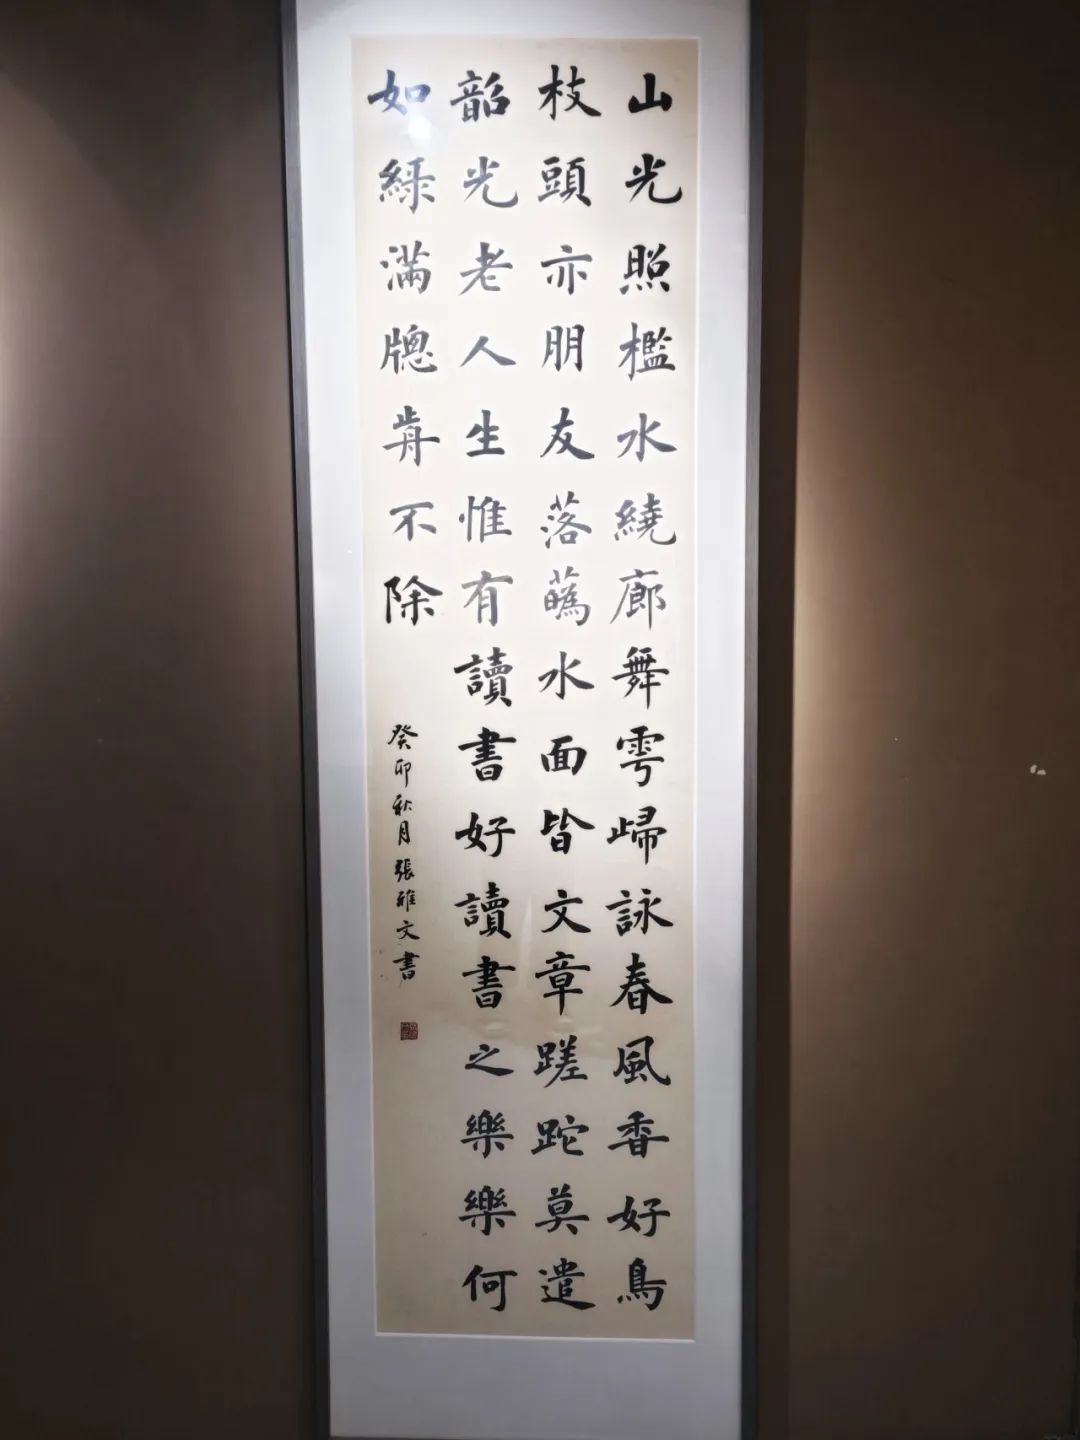 山光照檻水繞廊舞雩㱕詠春風香好鳥
枝頭亦朋友落蘤水面皆文章蹉跎莫遣
韶光老人生惟有讀書好讀書之樂樂何
如綠滿牕歬不除
癸卯秋月張雅文書